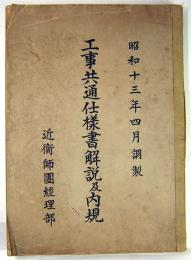 昭和十三年四月調製
工事共通仕樣書解說及內規
近衞師團經理部